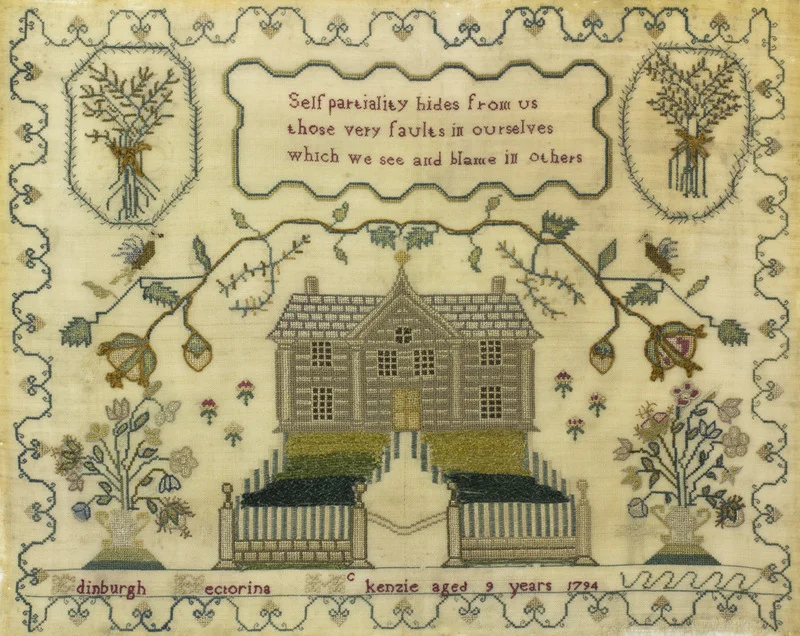 Self partiality hides from us
those very faults in ourselves
which we see and blame in others
Edinburgh Hectorina McKenzie aged 9 years 1794